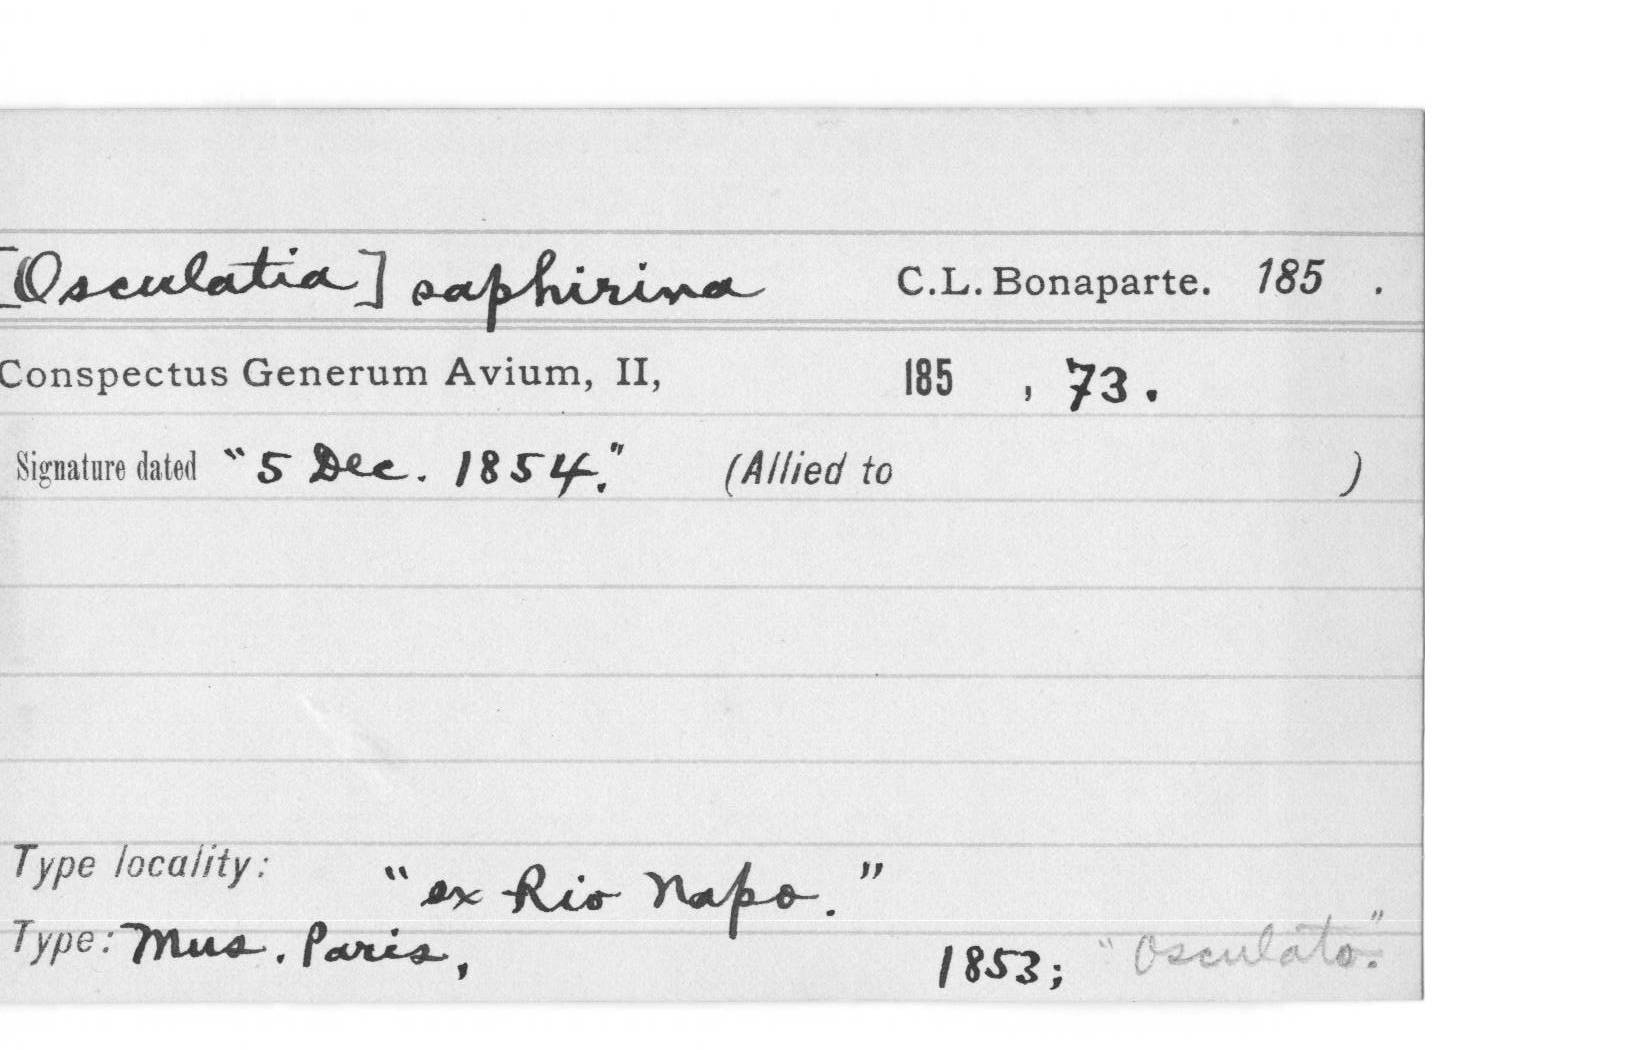 [Osculatia] saphirina C.L. Bonaparte. 185 .
Conspectus Generum Avium, II, 185 , 73.
Signature dated "5 Dec. 1854." (Allied to )
Type locality: "ex Rio Napo."
Type: Mus. Paris, 1853; "Osculato."